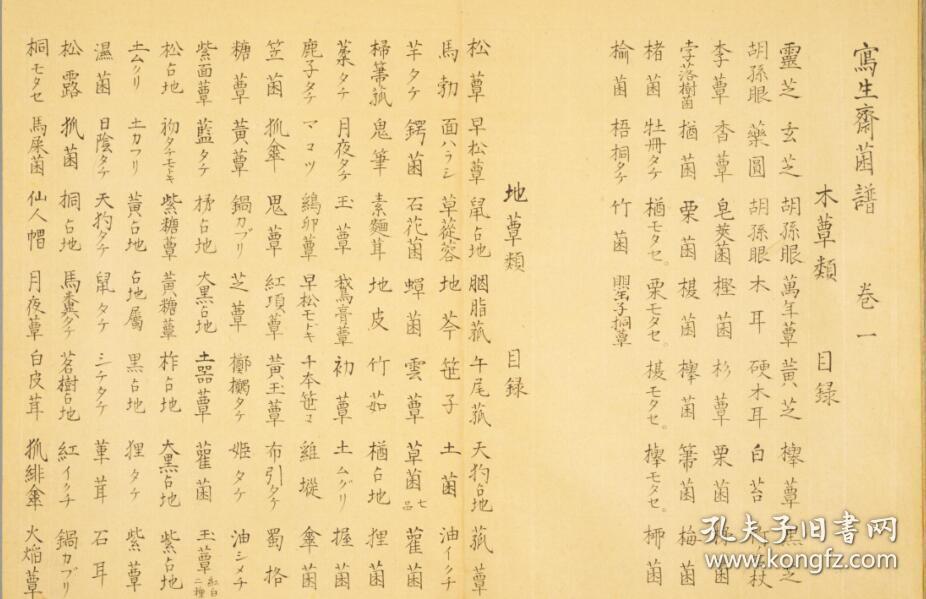 寫生齋菌譜 卷一
木蕈類 目録
靈芝 玄芝 胡孫眼 萬年蕈 黄芝 欅蕈 黒芝
胡孫眼 藥圓 胡孫眼 木耳 硬木耳 白苔 杖
李蕈 杳蕈 皂莢菌 樫菌 杉蕈 栗菌 菌
孛落樹菌 楢菌 栗菌 椹菌 欅菌 箒菌 梅菌
楮菌 牡丹タケ 楢モタセ。 栗モタセ。 椹モタセ。 欅モタセ。 柳菌
楡菌 梧桐タケ 竹菌 罌子桐蕈
地蕈類 目録
松蕈 早松蕈 鼠占地 胭脂菰 午尾菰 天狗占地 菰蕈
馬勃 面ハラシ 草蓯蓉 地芩 笹子 土菌 油イクチ
芋タケ 鍔菌 石花菌 蟑菌 雲蕈 草菌 七品 雚菌
掃箒菰 鬼筆 素麵茸 地皮 竹茹 楢占地 狸菌
藁タケ 月夜タケ 玉蕈 鵞膏蕈 初蕈 土ムグリ 握菌
鹿子タケ マコツ 鷄卵蕈 早松モドキ 千本笹コ 雞㙡 傘菌
笠菌 狐傘 鬼蕈 紅項蕈 黄玉蕈 布引タケ 蜀格
糖蕈 黄蕈 鍋カブリ 芝蕈 櫛タケ 姫タケ 油シメチ
紫面蕈 藍タケ 橚占地 大黒占地 土器蕈 雚菌 玉蕈 紅白二種
松占地 初タケモドキ 紫糖蕈 黄糖蕈 柞占地 大黒占地 紫占地
土クリ 土カフリ 黄占地 占地屬 黒占地 狸タケ 紫蕈
濕菌 日陰タケ 天狗タケ 鼠タケ シチタケ 葷茸 石耳
松露 狐菌 桐占地 馬糞タケ 茗樹占地 紅イクチ 鍋カブリ
桐モタセ 馬屎菌 仙人帽 月夜蕈 白皮茸 狐緋傘 火焔蕈
孔夫子旧书网
www.kongfz.com